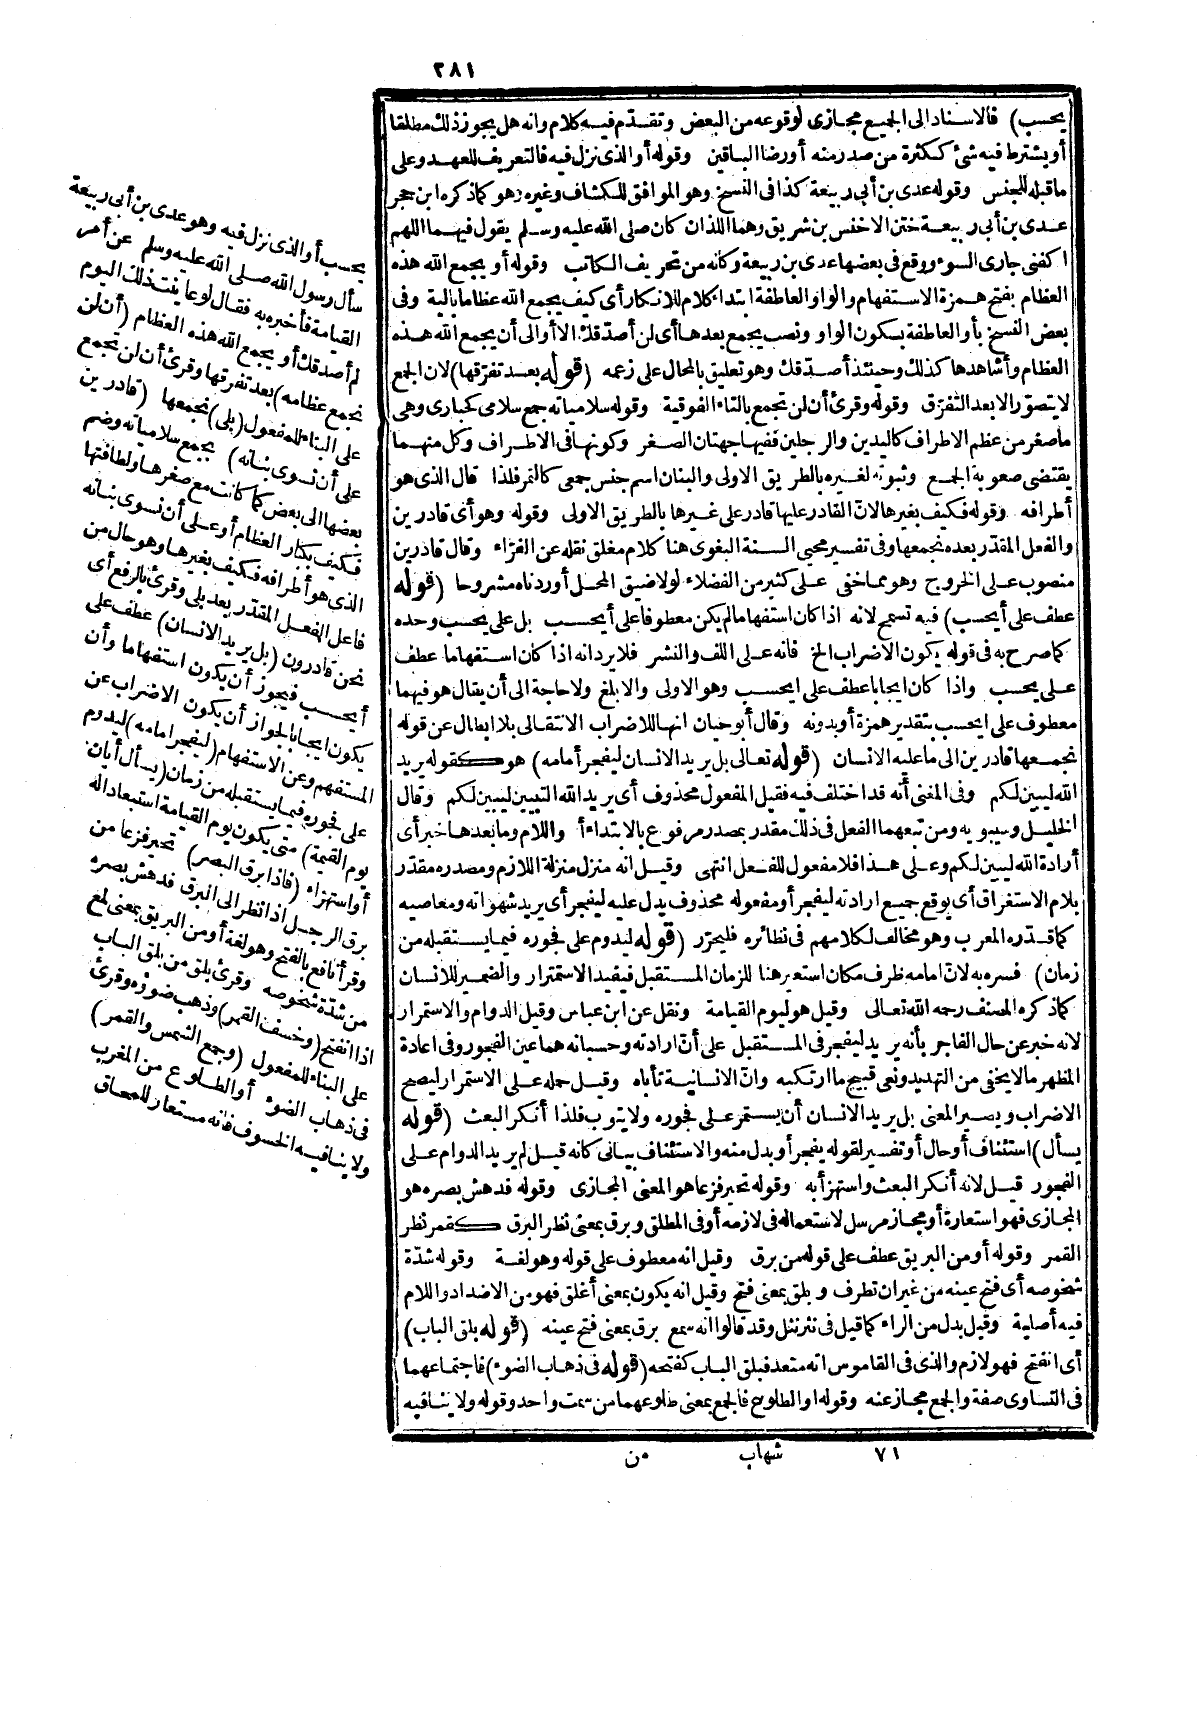 ٢٨١
يحسب) فالاسناد الى الجميع مجازى لوقوعه من البعض وتقدّم فيه كلام وانه هل يجوز ذلك مطلقا
أو يشترط فيه شئ ككثرة من صدر منه أو رضا الباقين وقوله أو الذى نزل فيه فالتعريف للعهد وعلى
ما قبله للجنس وقوله عدى بن أبى ربيعة كذا فى النسخ وهو الموافق للكشاف وغيره وهو كما ذكره ابن حجر
عدى بن أبى ربيعة ختن الاخنس بن شريق وهما اللذان كان صلى الله عليه وسلم يقول فيهما اللهم
اكفنى جارى السوء ووقع فى بعضها عدى بن ربيعة وكانه من تحريف الكاتب وقوله أو يجمع الله هذه
العظام بفتح همزة الاستفهام والواو العاطفة ابتداء كلام للانكار أى كيف يجمع الله عظاما بالية وفى
بعض النسخ بأو العاطفة بسكون الواو ونصب يجمع بعدها أى لن أصدّقك الا أو الى أن يجمع الله هذه
العظام وأشاهدها كذلك وحينئذ أصدّقك وهو تعليق بالمحال على زعمه (قوله بعد تفرّقها) لان الجمع
لا يتصوّر الا بعد التفرّق وقوله وقرئ أن لن تجمع بالتاء الفوقية وقوله سلامياته جمع سلامى كحبارى وهى
ما صغر من عظم الاطراف كاليدين والرجلين ففيها جهتان الصغر وكونها فى الاطراف وكل منهما
يقتضى صعوبة الجمع وثبوته لغيره بالطريق الاولى والبنان اسم جنس جمعى كالتمر فلذا قال الذى هو
أطرافه وقوله فكيف بغيرها لانّ القادر عليها قادر على غيرها بالطريق الاولى وقوله وهو أى قادرين
والفعل المقدّر بعده نجمعها وفى تفسير محيى السنة البغوى هنا كلام مغلق نقله عن الفرّاء وقال قادرين
منصوب على الخروج وهو مما خفى على كثير من الفضلاء لولا ضيق المحل أوردناه مشروحا (قوله
عطف على أيحسب) فيه تسمح لانه اذا كان استفهاما لم يكن معطوفا على أيحسب بل على يحسب وحده
كما صرح به فى قوله يكون الاضراب الخ فانه على اللف والنشر فلا يرد انه اذا كان استفهاما عطف
على يحسب واذا كان ايجابا عطف على ايحسب وهو الاولى والابلغ ولا حاجة الى أن يقال هو فيهما
معطوف على ايحسب بتقدير همزة أو بدونه وقال أبو حيان انها للاضراب الانتقالى بلا ابطال عن قوله
نجمعها قادرين الى ما عليه الانسان (قوله تعالى بل يريد الانسان ليفجر أمامه) هو كقوله يريد
الله ليبين لكم وفى المغنى أنه قد اختلف فيه فقيل المفعول محذوف أى يريد الله التبيين ليبين لكم وقال
الخليل وسيبويه ومن تبعهما الفعل فى ذلك مقدر بمصدر مرفوع بالابتداء أ واللام وما بعدها خبر أى
أرادة الله ليبين لكم وعلى هذا فلا مفعول للفعل انتهى وقيل انه منزل منزلة اللازم ومصدره مقدّر
بلام الاستغراق أى يوقع جميع ارادته ليفجر أو مفعوله محذوف يدل عليه ليفجر أى يريد شهواته ومعاصيه
كما قدّره المعرب وهو مخالف لكلامهم فى نظائره فليحرّر (قوله ليدوم على فجوره فيما يستقبله من
زمان) فسره به لانّ امامه ظرف مكان استعير هنا للزمان المستقبل فيفيد الاستمرار والضمير للانسان
كما ذكره المصنف رحمه الله تعالى وقيل هو ليوم القيامة ونقل عن ابن عباس وقيل الدوام والاستمرار
لانه خبر عن حال الفاجر بأنه يريد ليفجر فى المستقبل على أنّ ارادته وحسبانه هما عين الفجور وفى اعادة
المظهر ما لا يخفى من التهديد ونعى قبيح ما ارتكبه وانّ الانسانية تأباه وقيل حمله على الاستمرار ليصح
الاضراب ويصير المعنى بل يريد الانسان أن يستمر على فجوره ولا يتوب فلذا أنكر البعث (قوله
يسأل) استئناف أو حال أو تفسير لقوله يفجر أو بدل منه والاستئناف بيانى كانه قيل لم يريد الدوام على
الفجور قيل لانه أنكر البعث واستهزأ به وقوله تحير فزعا هو المعنى المجازى وقوله فدهش بصره هو
المجازى فهو استعارة أو مجاز مرسل لاستعماله فى لازمه أو فى المطلق وبرق بمعنى نظر البرق كقمر نظر
القمر وقوله أو من البريق عطف على قوله من برق وقيل انه معطوف على قوله وهو لغة وقوله شدّة
شخوصه أى فتح عينه من غير ان تطرف وبلق بمعنى فتح وقيل انه يكون بمعنى أغلق فهو من الاضداد واللام
فيه أصلية وقيل بدل من الراء كما قيل فى نثر نثل وقد قالوا انه سمع برق بمعنى فتح عينه (قوله بلق الباب)
أى انفتح فهو لازم والذى فى القاموس انه متعد فبلق الباب كفتحه (قوله فى ذهاب الضوء) فاجتماعهما
فى التساوى صفة والجمع مجاز عنه وقوله او الطلوع فالجمع بمعنى طلوعهما من سمت واحد وقوله ولا ينافيه
٧١ شهاب من
يحسب أو الذى نزل فيه وهو عدى بن أبى ربيعة
سأل رسول الله صلى الله عليه وسلم عن أمر
القيامة فأخبره به فقال لو عاينت ذلك اليوم
لم أصدقك أو يجمع الله هذه العظام (أن لن
نجمع عظامه) بعد تفرقها وقرئ أن لن تجمع
على البناء للمفعول (بلى) نجمعها (قادرين
على أن نسوى بنانه) بجمع سلامياته وضم
بعضها الى بعض كما كانت مع صغرها ولطافتها
فكيف بكبار العظام أو على أن نسوى بنانه
الذى هو أطرافه فكيف بغيرها وهو حال من
فاعل الفعل المقدّر بعد بلى وقرئ بالرفع أى
نحن قادرون (بل يريد الانسان) عطف على
أيحسب فيجوز أن يكون استفهاما وأن
يكون ايجابا لجواز أن يكون الاضراب عن
المستفهم وعن الاستفهام (ليفجر امامه) ليدوم
على فجوره فيما يستقبله من زمان (يسأل أيان
يوم القيمة) متى يكون يوم القيامة استبعادا له
أو استهزاء (فاذا برق البصر) تحير فزعا من
برق الرجل اذا نظر الى البرق فدهش بصره
وقرأ نافع بالفتح وهو لغة أو من البريق بمعنى لمع
من شدّة شخوصه وقرئ بلق من بلق الباب
اذا انفتح (وخسف القمر) وذهب ضوؤه وقرئ
على البناء للمفعول (وجمع الشمس والقمر)
فى ذهاب الضوء أو الطلوع من المغرب
ولا ينافيه الخسوف فانه مستعار للمحاق